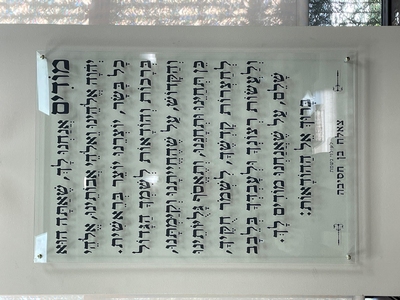 מוֹדִים אֲנַחְנוּ לָךְ, שָׁאַתָּה הוּא
יְהֹוָה אֱלֹהֵינוּ וֵאלֹהֵי אֲבוֹתֵינוּ, אֱלֹהֵי
כָל בָּשָׂר, יוֹצְרֵנוּ יוֹצֵר בְּרֵאשִׁית.
בְּרָכוֹת וְהוֹדָאוֹת לְשִׁמְךָ הַגָּדוֹל
וְהַקָּדוֹשׁ, עַל שֶׁהֶחֱיִיתָנוּ וְקִיַּמְתָּנוּ,
כֵּן תְּחַיֵּנוּ וּתְחָנֵּנוּ, וְתֶאֱסֹף גָּלֻיּוֹתֵינוּ
לְחַצְרוֹת קָדְשֶׁךָ, לִשְׁמֹר חֻקֶּיךָ,
וְלַעֲשׂוֹת רְצוֹנְךָ וּלְעָבְדְּךָ בְּלֵבָב
שָׁלֵם, עַל שֶׁאֲנַחְנוּ מוֹדִים לָךְ.
בָּרוּךְ אֵל הַהוֹדָאוֹת:
לעילוי נשמת
צאלח בן חסיבה